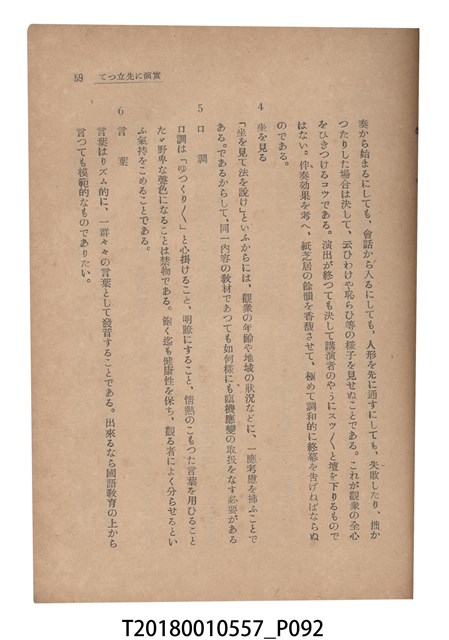 實演に先立つて
59
奏から始まるにしても、會話から入るにしても、人形を先に通すにしても、失敗したり、拙か
つたりした場合は決して、云ひわけや恥らひ等の樣子を見せぬことである。これが觀衆の全心
をひきつけるコツである。演出が終つても決して講演者のやうにスツ〳〵と壇を下りるもので
はない。伴奏効果を考へ、紙芝居の餘韻を香馥させて、極めて調和的に終幕を告げねばならぬ
のである。
4 坐を見る
「坐を見て法を說け」といふからには、觀衆の年齡や地域の狀況などに、一應考慮を拂ふことで
ある。であるからして、同一內容の敎材であつても如何樣にも臨機應變の取扱をなす必要がある
5 口調
口調は「ゆつくり〳〵」と心掛けること、明瞭にすること、情熱のこもつた言葉を用ひること
たゞ野卑な聲色になることは禁物である。飽く迄も健康性を保ち、觀る者によく分らせるとい
ふ氣持をこめることである。
6 言葉
言葉はリズム的に、一群々々の言葉として發音することである。出來るなら國語敎育の上から
言つても模範的なものでありたい。
T20180010557_P092